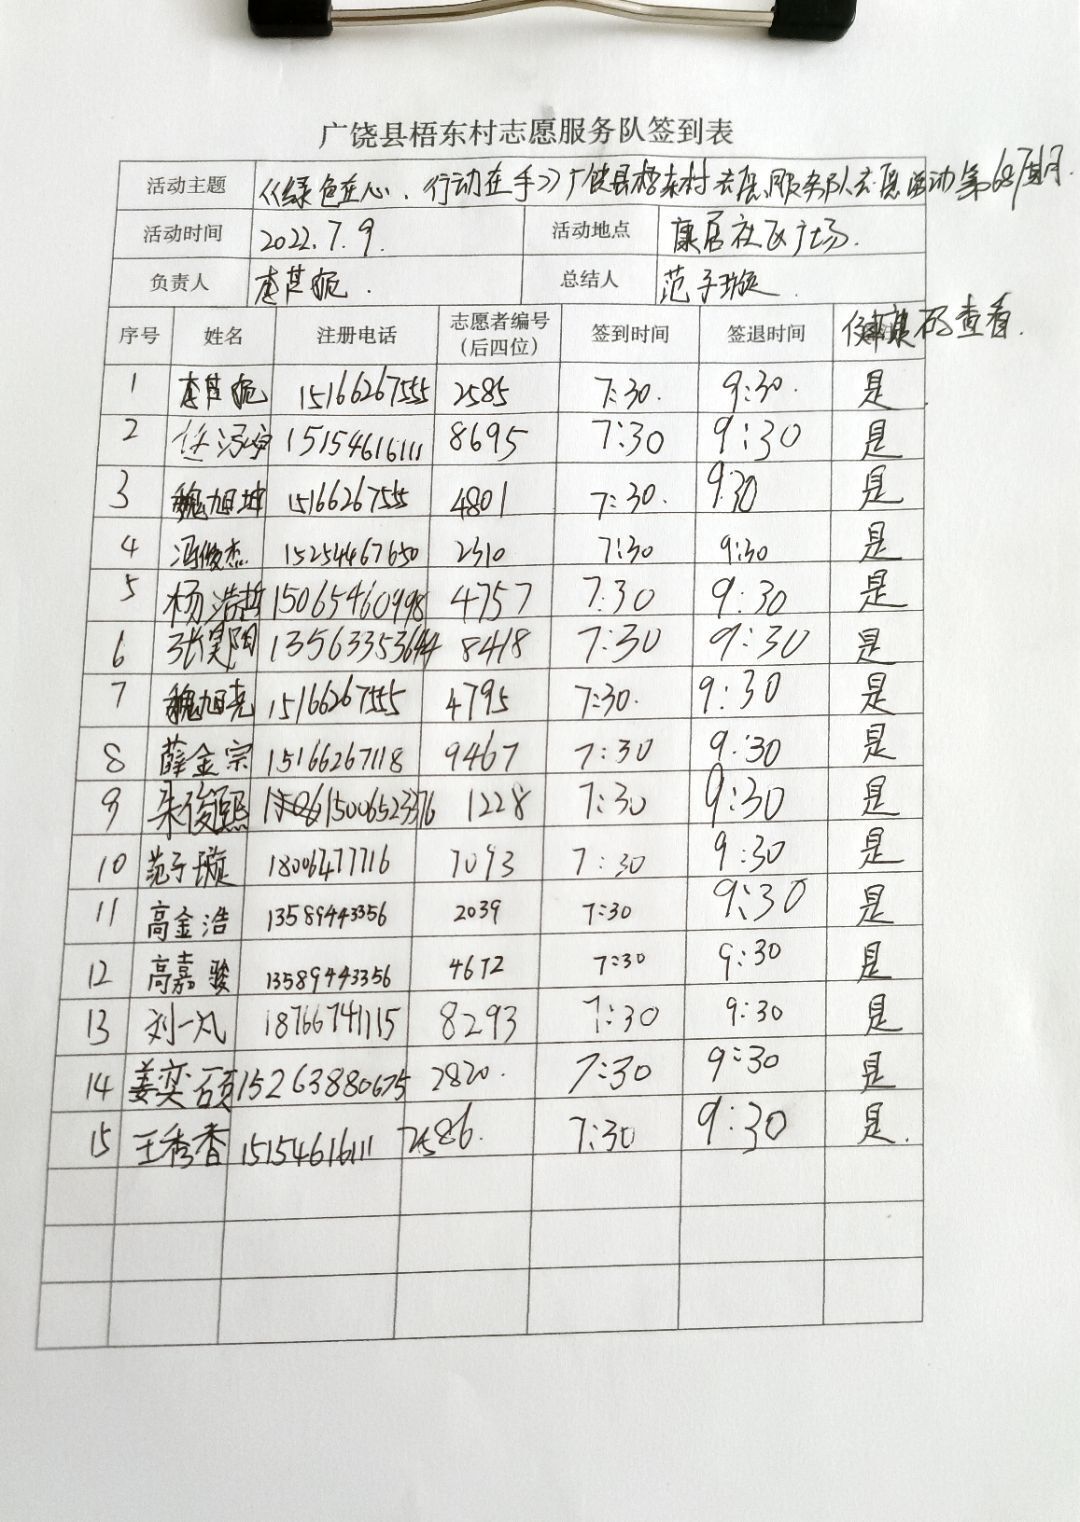 广饶县梧东村志愿服务队签到表
活动主题 《绿色在心、行动在手》广饶县梧东村志愿服务队志愿活动第68期
活动时间 2022.7.9. 活动地点 康居社区广场.
负责人 总结人 范子璇.
序号 姓名 注册电话 志愿者编号（后四位） 签到时间 签退时间 健康码查看.
1 15166267555 2585 7:30. 9:30. 是
2 15154616111 8695 7:30 9:30 是
3 魏旭坤 15166267555 4801 7:30. 9:30 是
4 冯俊杰 15254467650 2310 7:30 9:30 是
5 杨浩哲 15065460998 4757 7:30 9:30 是
6 张昊阳 13563353644 8418 7:30 9:30 是
7 魏旭尧 15166267555 4795 7:30. 9:30 是
8 薛金宗 15166267118 9467 7:30 9:30 是
9 朱俊熙 15006523376 1228 7:30 9:30 是
10 范子璇 18006477716 7093 7:30 9:30 是
11 高金浩 13589443356 2039 7:30 9:30 是
12 高嘉骏 13589443356 4672 7:30 9:30 是
13 刘一凡 18766741115 8293 7:30 9:30 是
14 姜奕硕 15263880675 2820. 7:30 9:30 是
15 王秀香 15154616111 2586. 7:30 9:30 是.